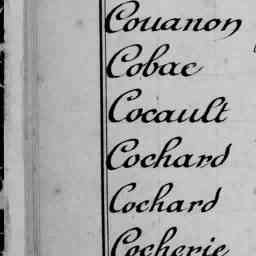 Couanon
Cobac
Cocault
Cochard
Cochard
Cocherie